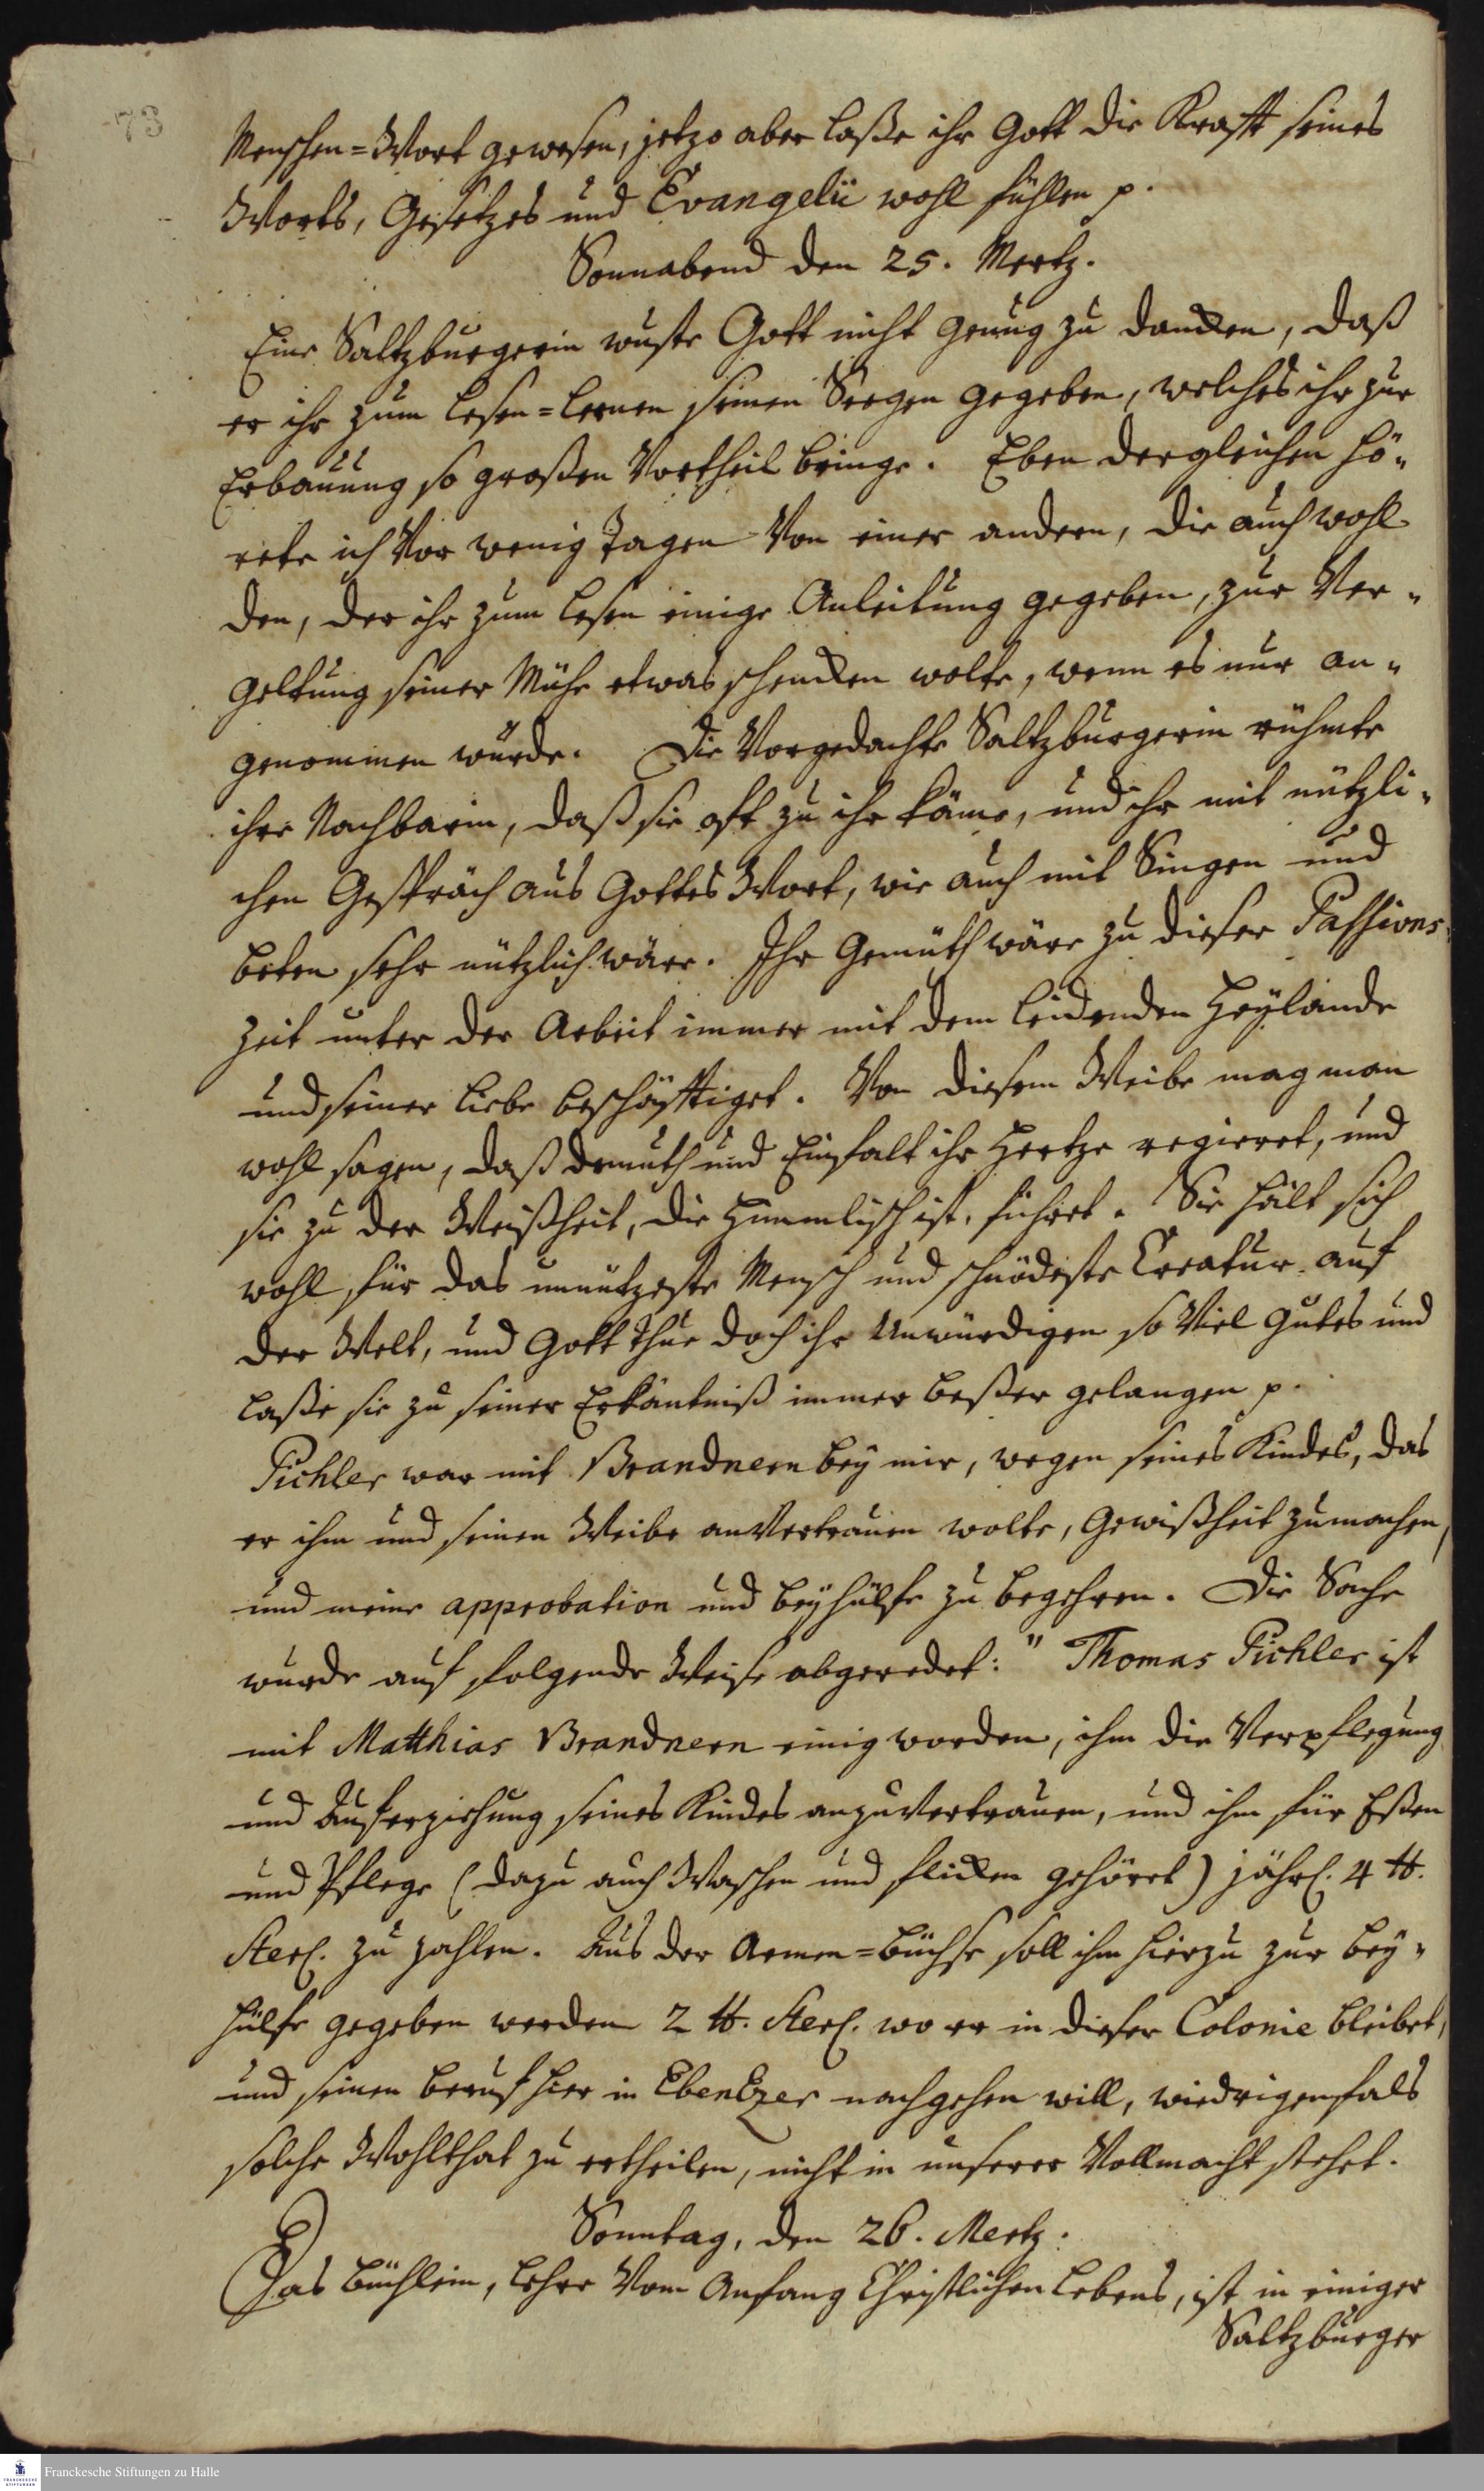 73
Menschen=Wort gewesen, jetzo aber laße ihr Gott die Krafft seines
Worts, Gesetzes und Evangelii wohl fühlen p.
Sonnabend den 25. Mertz.
Eine Saltzburgerin wuste Gott nicht genug zu dancken, daß
er ihr zum Lesen=lernen seinen Seegen gegeben, welches ihr zur
Erbauung so großen Vortheil bringe. Eben dergleichen hö„
rete ich vor wenig Tagen von einer andern, die auch wohl
den, der ihr zum Lesen einige Anleitung gegeben, zur Ver„
geltung seiner Mühe etwas schencken wolte, wenn es nur an„
genommen würde. Die Vorgedachte Saltzburgerin rühmte
ihre Nachbarin, daß sie oft zu ihr käme, und ihr mit nützli„
chen Gespräch aus Gottes Wort, wie auch mit Singen und
beten sehr nützlich wäre. Ihr Gemüth wäre zu dieser Passions„
Zeit unter der Arbeit immer mit dem leidenden Heylande
und seiner Liebe beschäfftiget. Von diesem Weibe mag man
wohl sagen, daß demuth und Einfalt ihr Hertze regieret, und
sie zu der Weißheit, die Himmlisch ist, führet. Sie hält sich
wohl für das unnützeste Mensch und schnödeste Creatur auf
der Welt, und Gott thue doch ihr Unwürdigen so viel Gutes und
laße sie zu seiner Erkäntniß immer beßer gelangen p.
Pichler war mit Brandnern bey mir, wegen seines Kindes, das
er ihm und seinen Weibe anvertrauen wolte, Gewißheit zumachen,
und meine approbation und beyhülfe zu begehren. Die Sache
wurde auf folgende Weise abgeredet: " Thomas Pichler ist
mit Matthias Brandnern einig worden, ihm die Verpflegung
und Auferziehung seines Kindes anzuvertrauen, und ihm für Eßen
und Pflege (dazu auch Waschen und flicken gehöret) jährl. 4 ℔.
Sterl. zu zahlen. Aus der Armen=büchse soll ihm hierzu zur bey„
hülfe gegeben werden 2 ℔. Sterl. wo er in dieser Colonie bleibet,
und seinen beruf hier in EbenEzer nachgehen will, wiedrigenfals
solche Wohlthat zu ertheilen, nicht in unserer Vollmacht stehet.
Sonntag, den 26. Mertz.
Das büchlein, Lehre vom Anfang Christlichen Lebens, ist in einiger
Saltzburger
Franckesche Stiftungen zu Halle